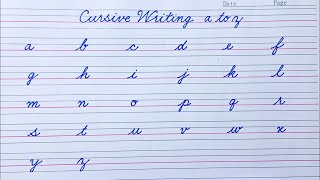 Date Page
Cursive Writing a to z
a b c d e f
g h i j k l
m n o p q r
s t u v w x
y z